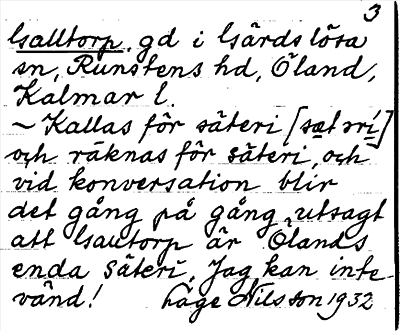 3
Galltorp. gd i Gärdslösa
sn, Runstens hd, Öland,
Kalmar l.
~ Kallas för säteri [sætərí]
och räknas för säteri, och
vid konversation blir
det gång på gång utsagt
att Galltorp är Ölands
enda säteri. Jag kan inte
vänd! Låge Nilsson 1932